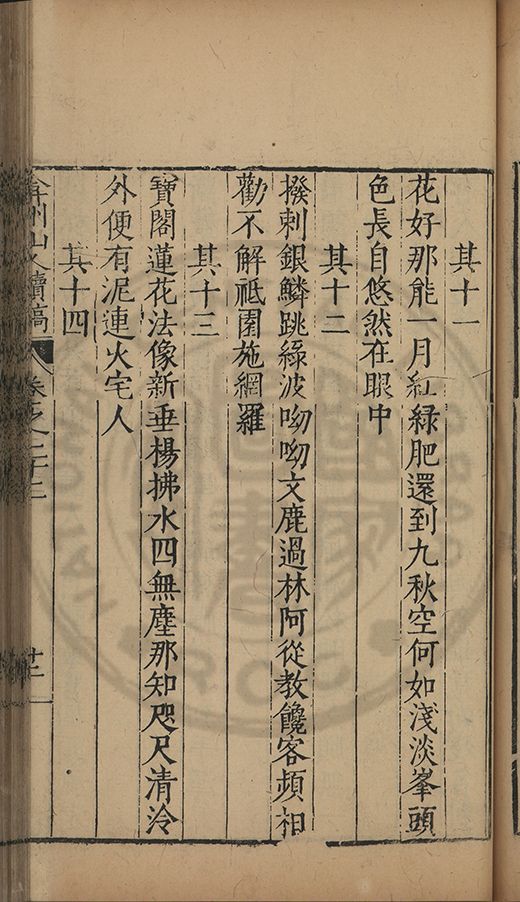 其十一
花好那能一月紅綠肥還到九秋空何如淺淡峯頭
色長自悠然在眼中
其十二
撥剌銀鱗跳綠波呦呦文鹿過林阿從教饞客頻相
勸不解祗園施網羅
其十三
寶閣蓮花法像新垂楊拂水四無塵那知咫尺清泠
外便有泥連火宅人
其十四
弇州山人續稿 卷之二十二